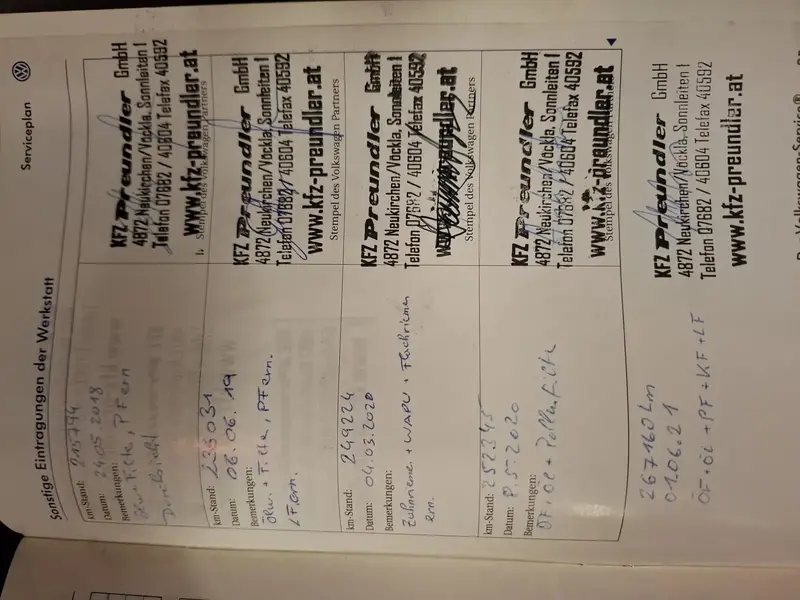 Serviceplan
Sonstige Eintragungen der Werkstatt
km-Stand: 215794
Datum: 24.05 2018
Bemerkungen:
Ölw. Filter, PF ern
Durchsicht
KFZ Preundler GmbH
4872 Neukirchen/Vöckla, Sonnleiten 1
Telefon 07682 / 40604 Telefax 40592
www.kfz-preundler.at
Stempel des Volkswagen Partners
km-Stand: 236031
Datum: 06.06.19
Bemerkungen:
Ölw. + Filter, PF ern.
LF ern.
KFZ Preundler GmbH
4872 Neukirchen/Vöckla, Sonnleiten 1
Telefon 07682 / 40604 Telefax 40592
www.kfz-preundler.at
Stempel des Volkswagen Partners
km-Stand: 249224
Datum: 04.03.2020
Bemerkungen:
Zahnriemen + WAPU + Flachriemen
ern.
KFZ Preundler GmbH
4872 Neukirchen/Vöckla, Sonnleiten 1
Telefon 07682 / 40604 Telefax 40592
www.kfz-preundler.at
Stempel des Volkswagen Partners
km-Stand: 252345
Datum: 5-2020
Bemerkungen:
ÖF + Öl + Pollenfilter
KFZ Preundler GmbH
4872 Neukirchen/Vöckla, Sonnleiten 1
Telefon 07682 / 40604 Telefax 40592
www.kfz-preundler.at
Stempel des Volkswagen Partners
267160 km
01.06.21
ÖF + Öl + PF + KF + LF
KFZ Preundler GmbH
4872 Neukirchen/Vöckla, Sonnleiten 1
Telefon 07682 / 40604 Telefax 40592
www.kfz-preundler.at